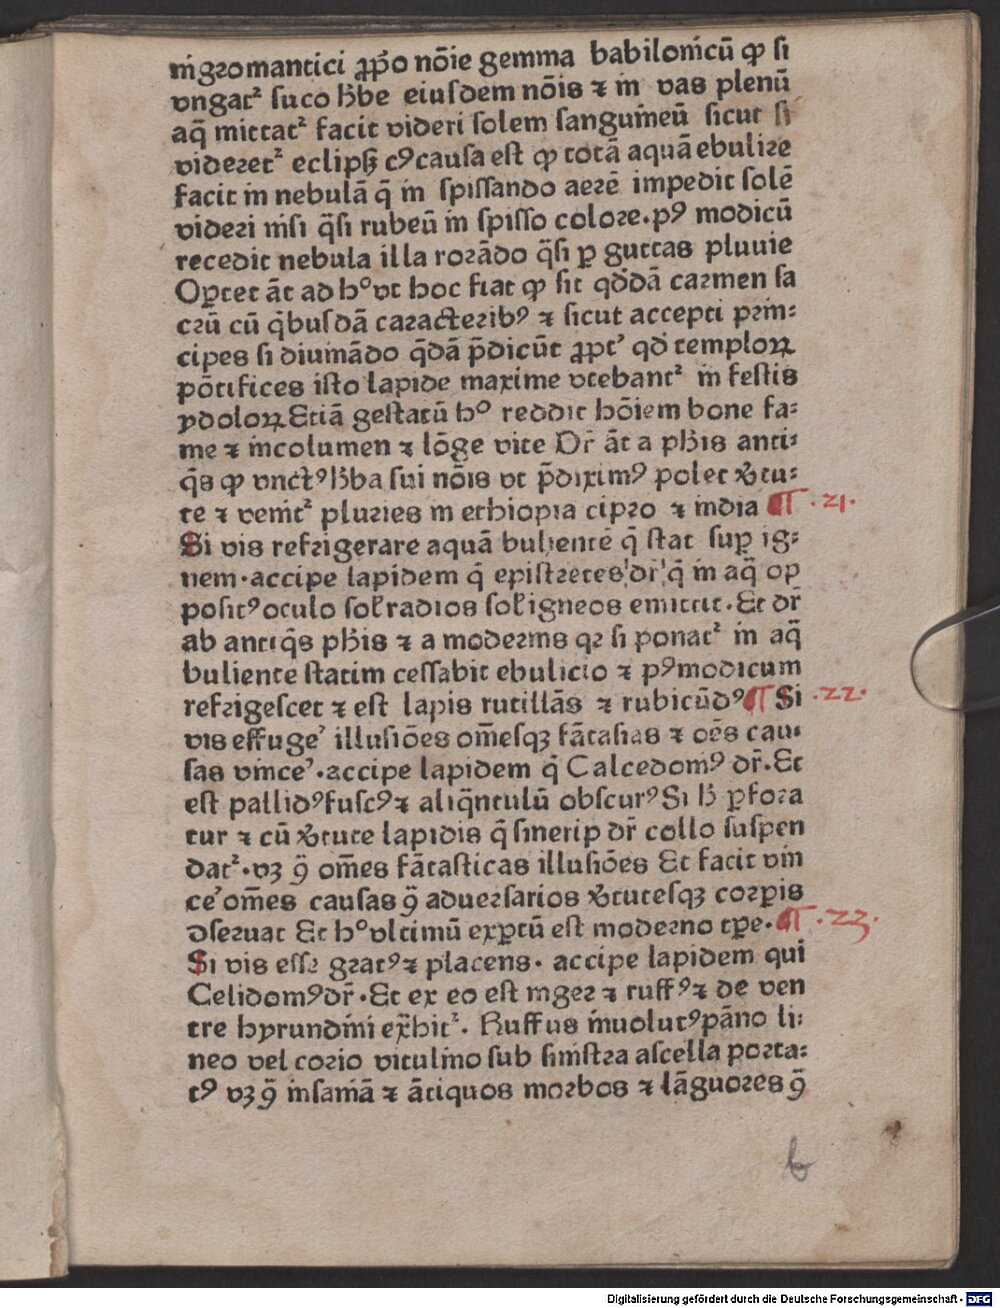 nigromantici ꝓp̄o nōīe gemma babilonicū ꝙ si
vngatᷣ suco h̄be eiusdem nōis ⁊ in vas plenū
aq̄ mittatᷣ facit videri solem sanguineū sicut si
videretᷣ eclipsꝫ cꝰ causa est ꝙ totā aquā ebulire
facit in nebulā q̄ in spissando aerē impedit solē
videri nisi q̄si rubeū in spisso colore. pꝰ modicū
recedit nebula illa rorādo q̄si ꝑ guttas pluuie
Oꝑtet āt ad hᵒ vt hoc fiat ꝙ sit qd̄dā carmen sa
crū cū q̄busdā caracteribꝰ ⁊ sicut accepti prin:
cipes si diuināndo q̄dā p̄dicūt ꝓptʼ qd̓ temploꝝ
pōtifices isto lapide maxime vtebantᷣ in festis
ydoloꝝ Etiā gestatū hᵒ reddit hōiem bone fa:
me ⁊ incolumen ⁊ lōge vite Dr̄ āt a ph̄is anti:
q̄s ꝙ vnctꝰ h̄ba sui nōis vt p̄diximꝰ polet v̓tu:
te ⁊ venitᷣ pluries in ethiopia cipro ⁊ india ¶ .21.
Si vis refrigerare aquā buliente q̄ stat suꝑ ig:
nem. accipe lapidem q̄ epistretes dr̄ q̄ in aq̄ op
positꝰ oculo sol̓ radios sol̓ igneos emittit. Et dr̄
ab antiq̄s ph̄is ⁊ a modernis qr si ponatᷣ in aq̄
buliente statim cessabit ebulicio ⁊ pꝰ modicum
refrigescet ⁊ est lapis rutillās ⁊ rubicūdꝰ ¶ Si .22.
vis effugeʼ illusiōes om̄esqꝫ fātasias ⁊ oēs cau:
sas vinceʼ. accipe lapidem q̄ Calcedoniꝰ dr̄. Et
est pallidꝰ fuscꝰ ⁊ aliq̄ntulū obscurꝰ Si h̄ ꝑfora
tur ⁊ cū v̓tute lapidis q̄ sinerip dr̄ collo suspen
datᷣ. vꝫ ꝯ̄ om̄es fātasticas illusiōes Et facit vin
ceʼ om̄es causas ꝯ̄ aduersarios v̓tutesqꝫ corꝑis
ꝯseruat Et hᵒ vltimū exꝑtū est moderno tꝑe. ¶ .23.
Si vis esse gratꝰ ⁊ placens. accipe lapidem qui
Celidoniꝰ dr̄. Et ex eo est niger ⁊ ruffꝰ ⁊ de ven
tre hyrundini ex̄hitᷣ. Ruffus inuolutꝰ pāno li:
neo vel corio vitulino sub sinistra ascella porta:
tꝰ vꝫ ꝯ̄ insaniā ⁊ ātiquos morbos ⁊ lāguores ꝯ̄
b
Digitalisierung gefördert durch die Deutsche Forschungsgemeinschaft - DFG